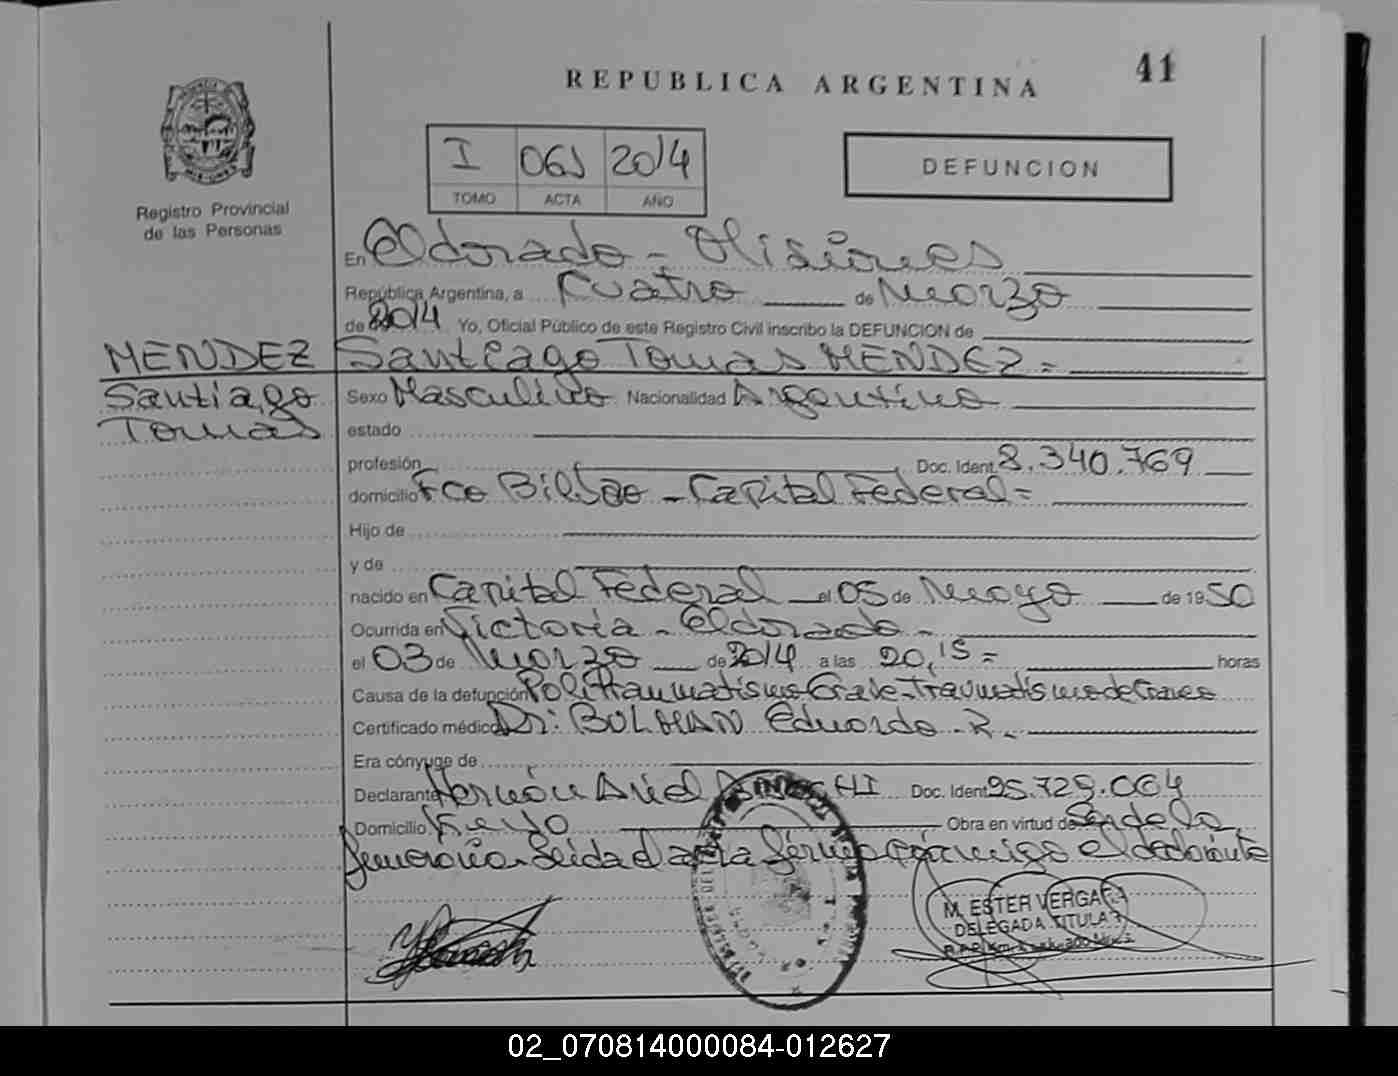 41
REPUBLICA ARGENTINA
I 061 2014
TOMO ACTA AÑO
DEFUNCION
Registro Provincial
de las Personas
En Eldorado - Misiones
República Argentina, a Cuatro de Marzo
de 2014 Yo, Oficial Público de este Registro Civil inscribo la DEFUNCION de
MENDEZ Santiago Tomas MENDEZ =
Santiago
Tomas
Sexo Masculino Nacionalidad Argentino
estado
profesión Doc. Ident. 8.340.769
domicilio Fco Bilbao - Capital Federal =
Hijo de
y de
nacido en Capital Federal el 05 de Mayo de 1950
Ocurrida en Victoria - Eldorado -
el 03 de Marzo de 2014 a las 20,15 = horas
Causa de la defunción Politraumatismo Grave - Traumatismo de Craneo
Certificado médico Dr: BULMAN Eduardo - R -
Era cónyuge de
Declarante Hernán Ariel Doc. Ident. 95.729.064
Domicilio Obra en virtud de Ser de la
funeraria - Leida el acta firma conmigo el declarante
M. ESTER VERGARA
DELEGADA TITULAR
02_070814000084-012627